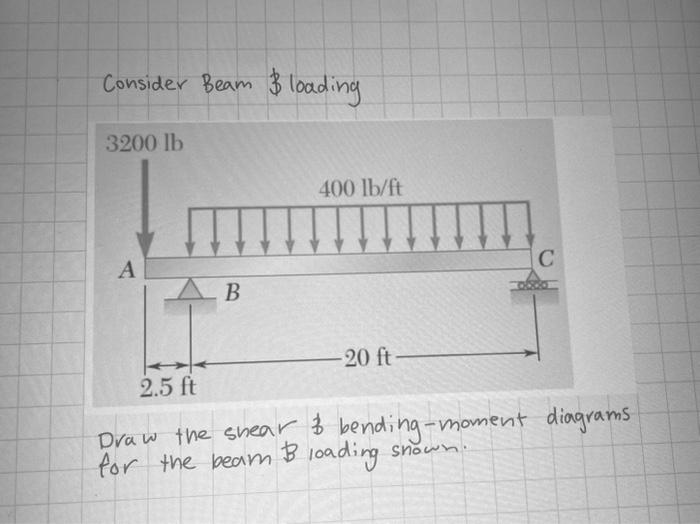 Consider Beam & loading
3200 lb
400 lb/ft
A
C
B
20 ft
2.5 ft
Draw the shear & bending-moment diagrams
for the beam & loading shown.